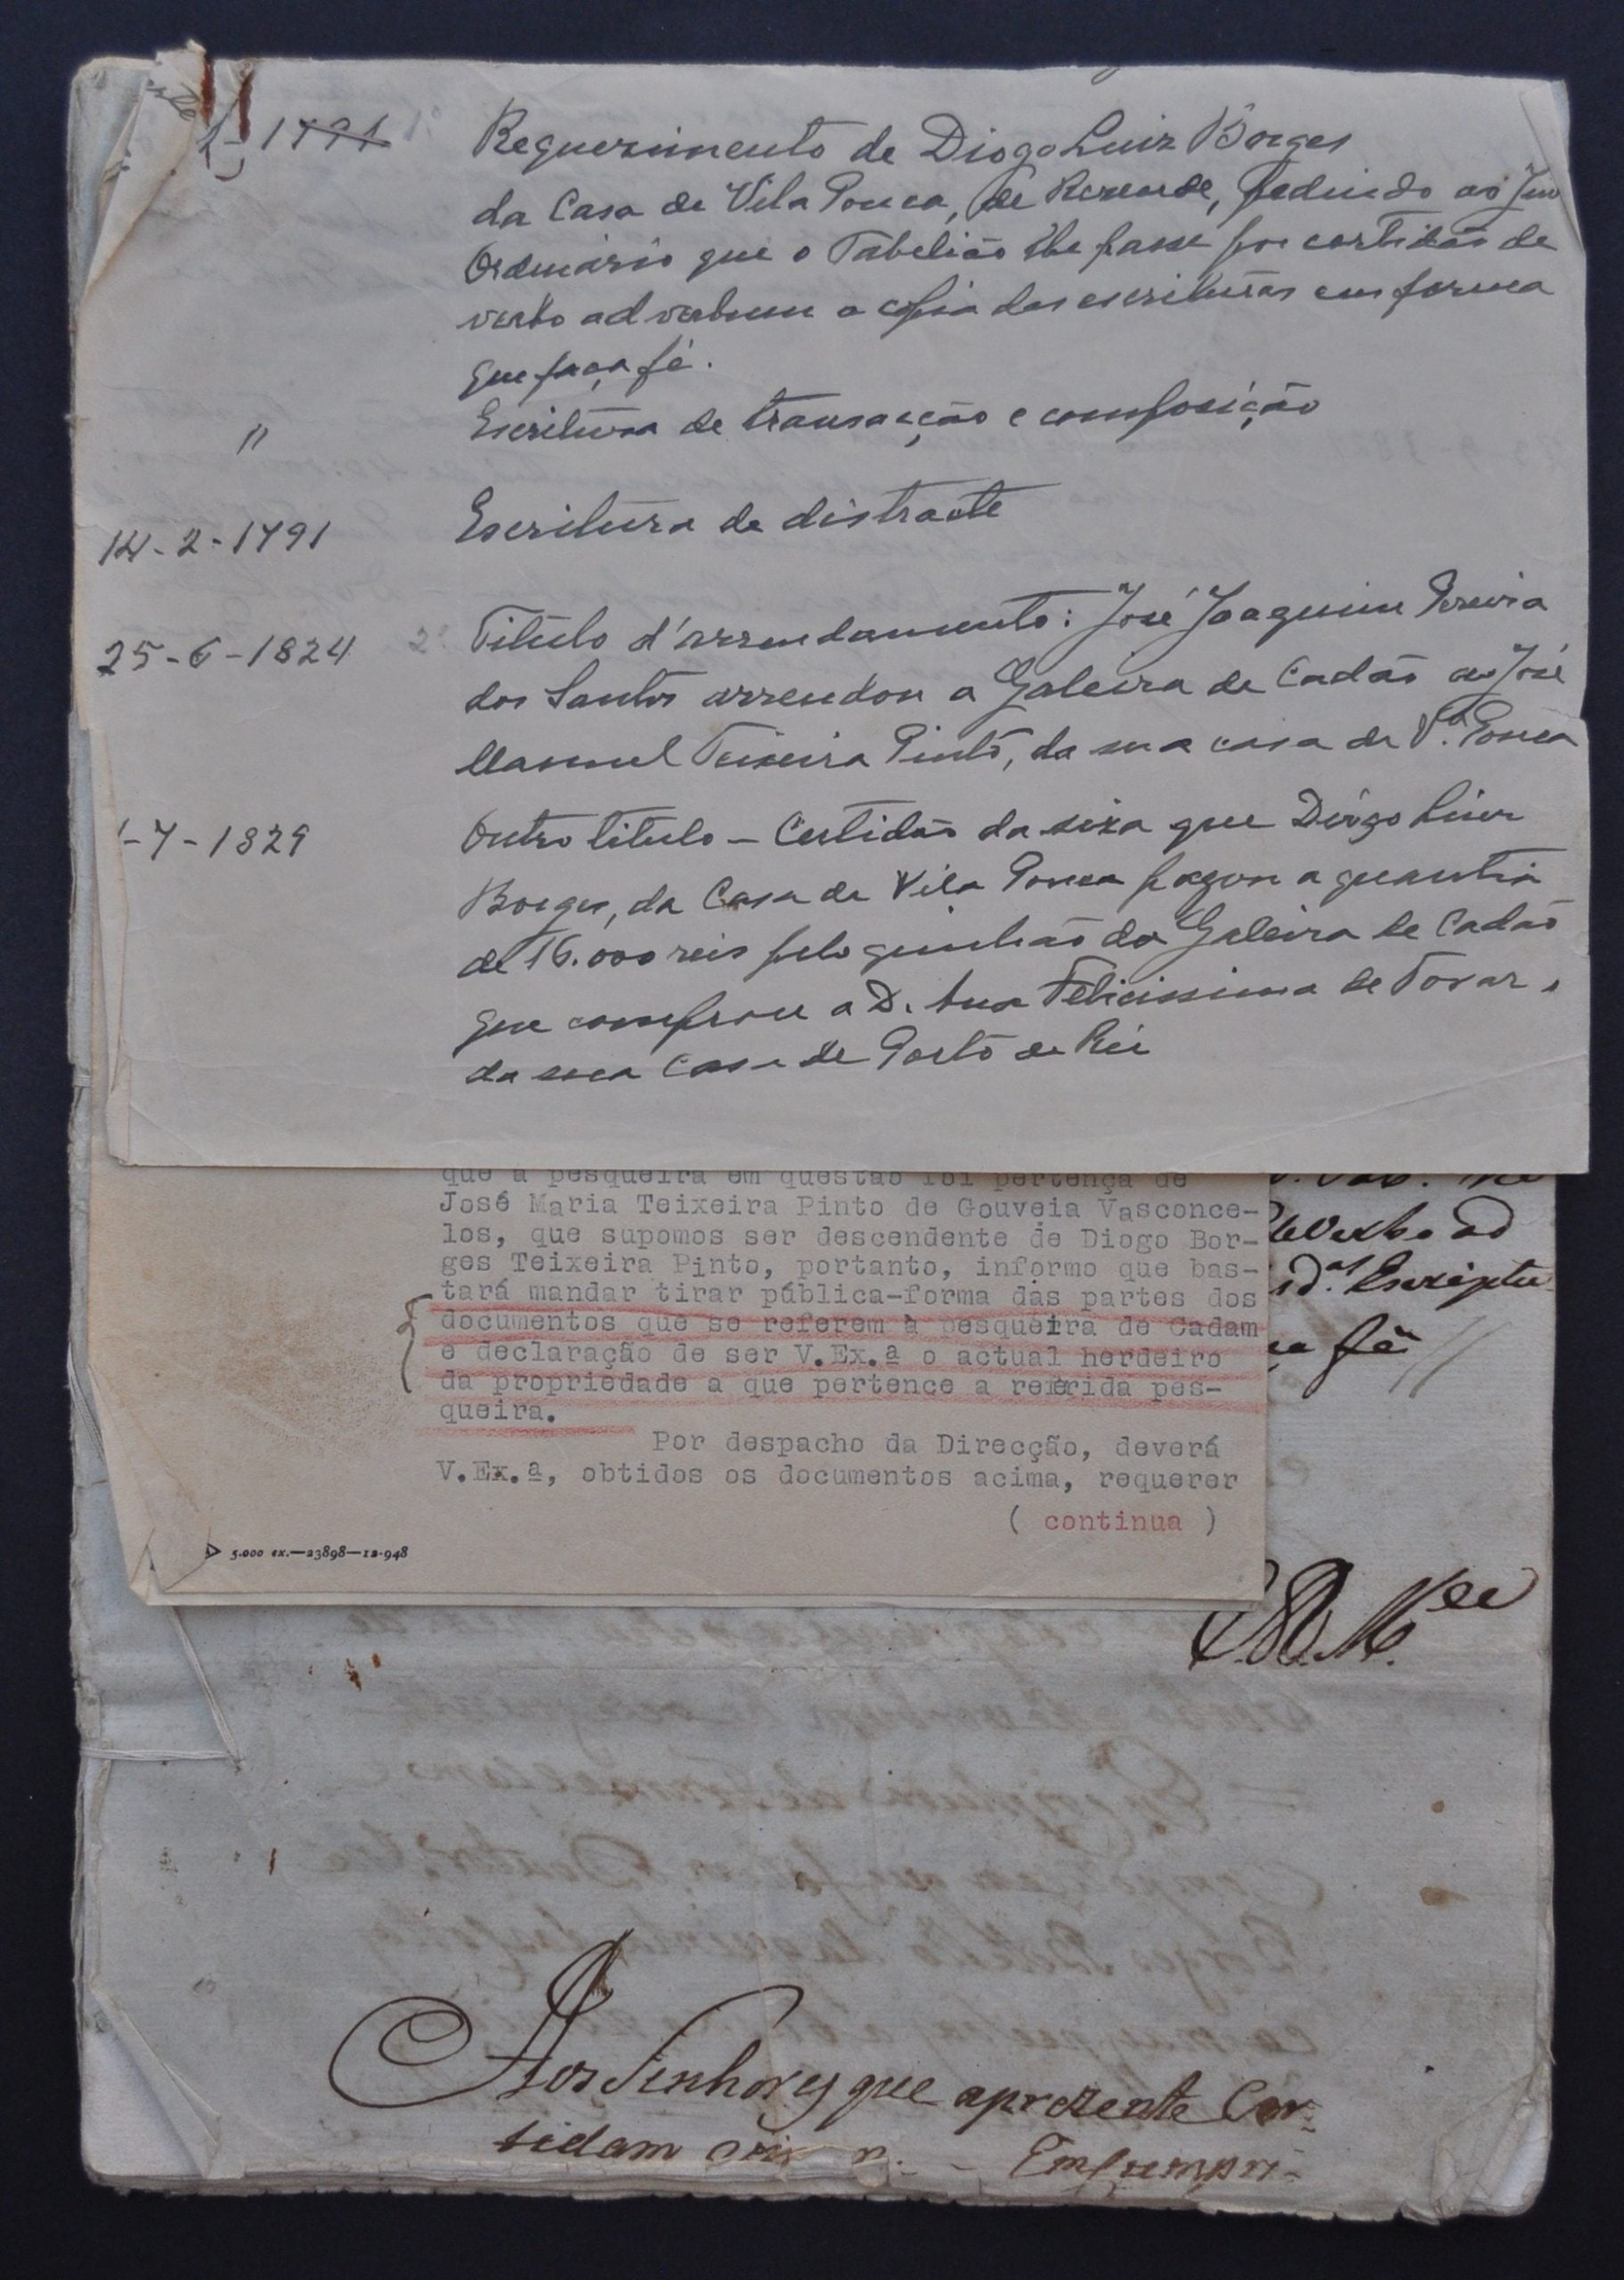 1791 1º Requerimento de Diogo Luiz Borges
da Casa de Vila Pouca, de Rezende, pedindo ao
Ordinário que o Tabelião lhe passe por certidão de
verbo ad verbum a cópia das escrituras em forma
que faça fé.
" Escritura de transacção e composição
14-2-1791 Escritura de distracte
25-6-1824 2º Titulo d'arrendamento: José Joaquim Pereira
dos Santos arrendou a Galeira de Cadão ao José
Manuel Teixeira Pinto, da sua casa de Vª. Pouca
-7-1829 Outro titulo - Certidão da siza que Diogo Luiz
Borges, da Casa de Vila Pouca pagou a quantia
de 16.000 reis pelo quinhão da Galeira de Cadão
que comprou a D. Ana Felicissima de Tovar,
da sua Casa de Porto de Rei
que a pesqueira em questão foi pertença de
José Maria Teixeira Pinto de Gouveia Vasconce-
los, que supomos ser descendente de Diogo Bor-
ges Teixeira Pinto, portanto, informo que bas-
tará mandar tirar pública-forma das partes dos
documentos que se referem à pesqueira de Cadam
e declaração de ser V.Ex.ª o actual herdeiro
da propriedade a que pertence a referida pes-
queira.
Por despacho da Direcção, deverá
V.Ex.ª, obtidos os documentos acima, requerer
( continua )
5.000 ex.—23898—12-948
de Verbo ad
Escriptu
fé
E.R.M.ce
Aos Senhores que aprezente Cer-
tidam